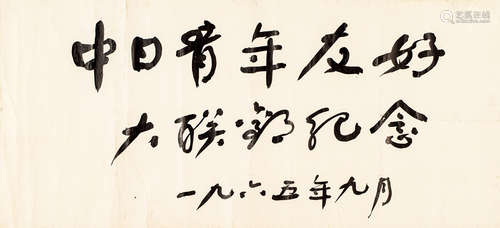 中日青年友好
大联欢纪念
一九六五年九月